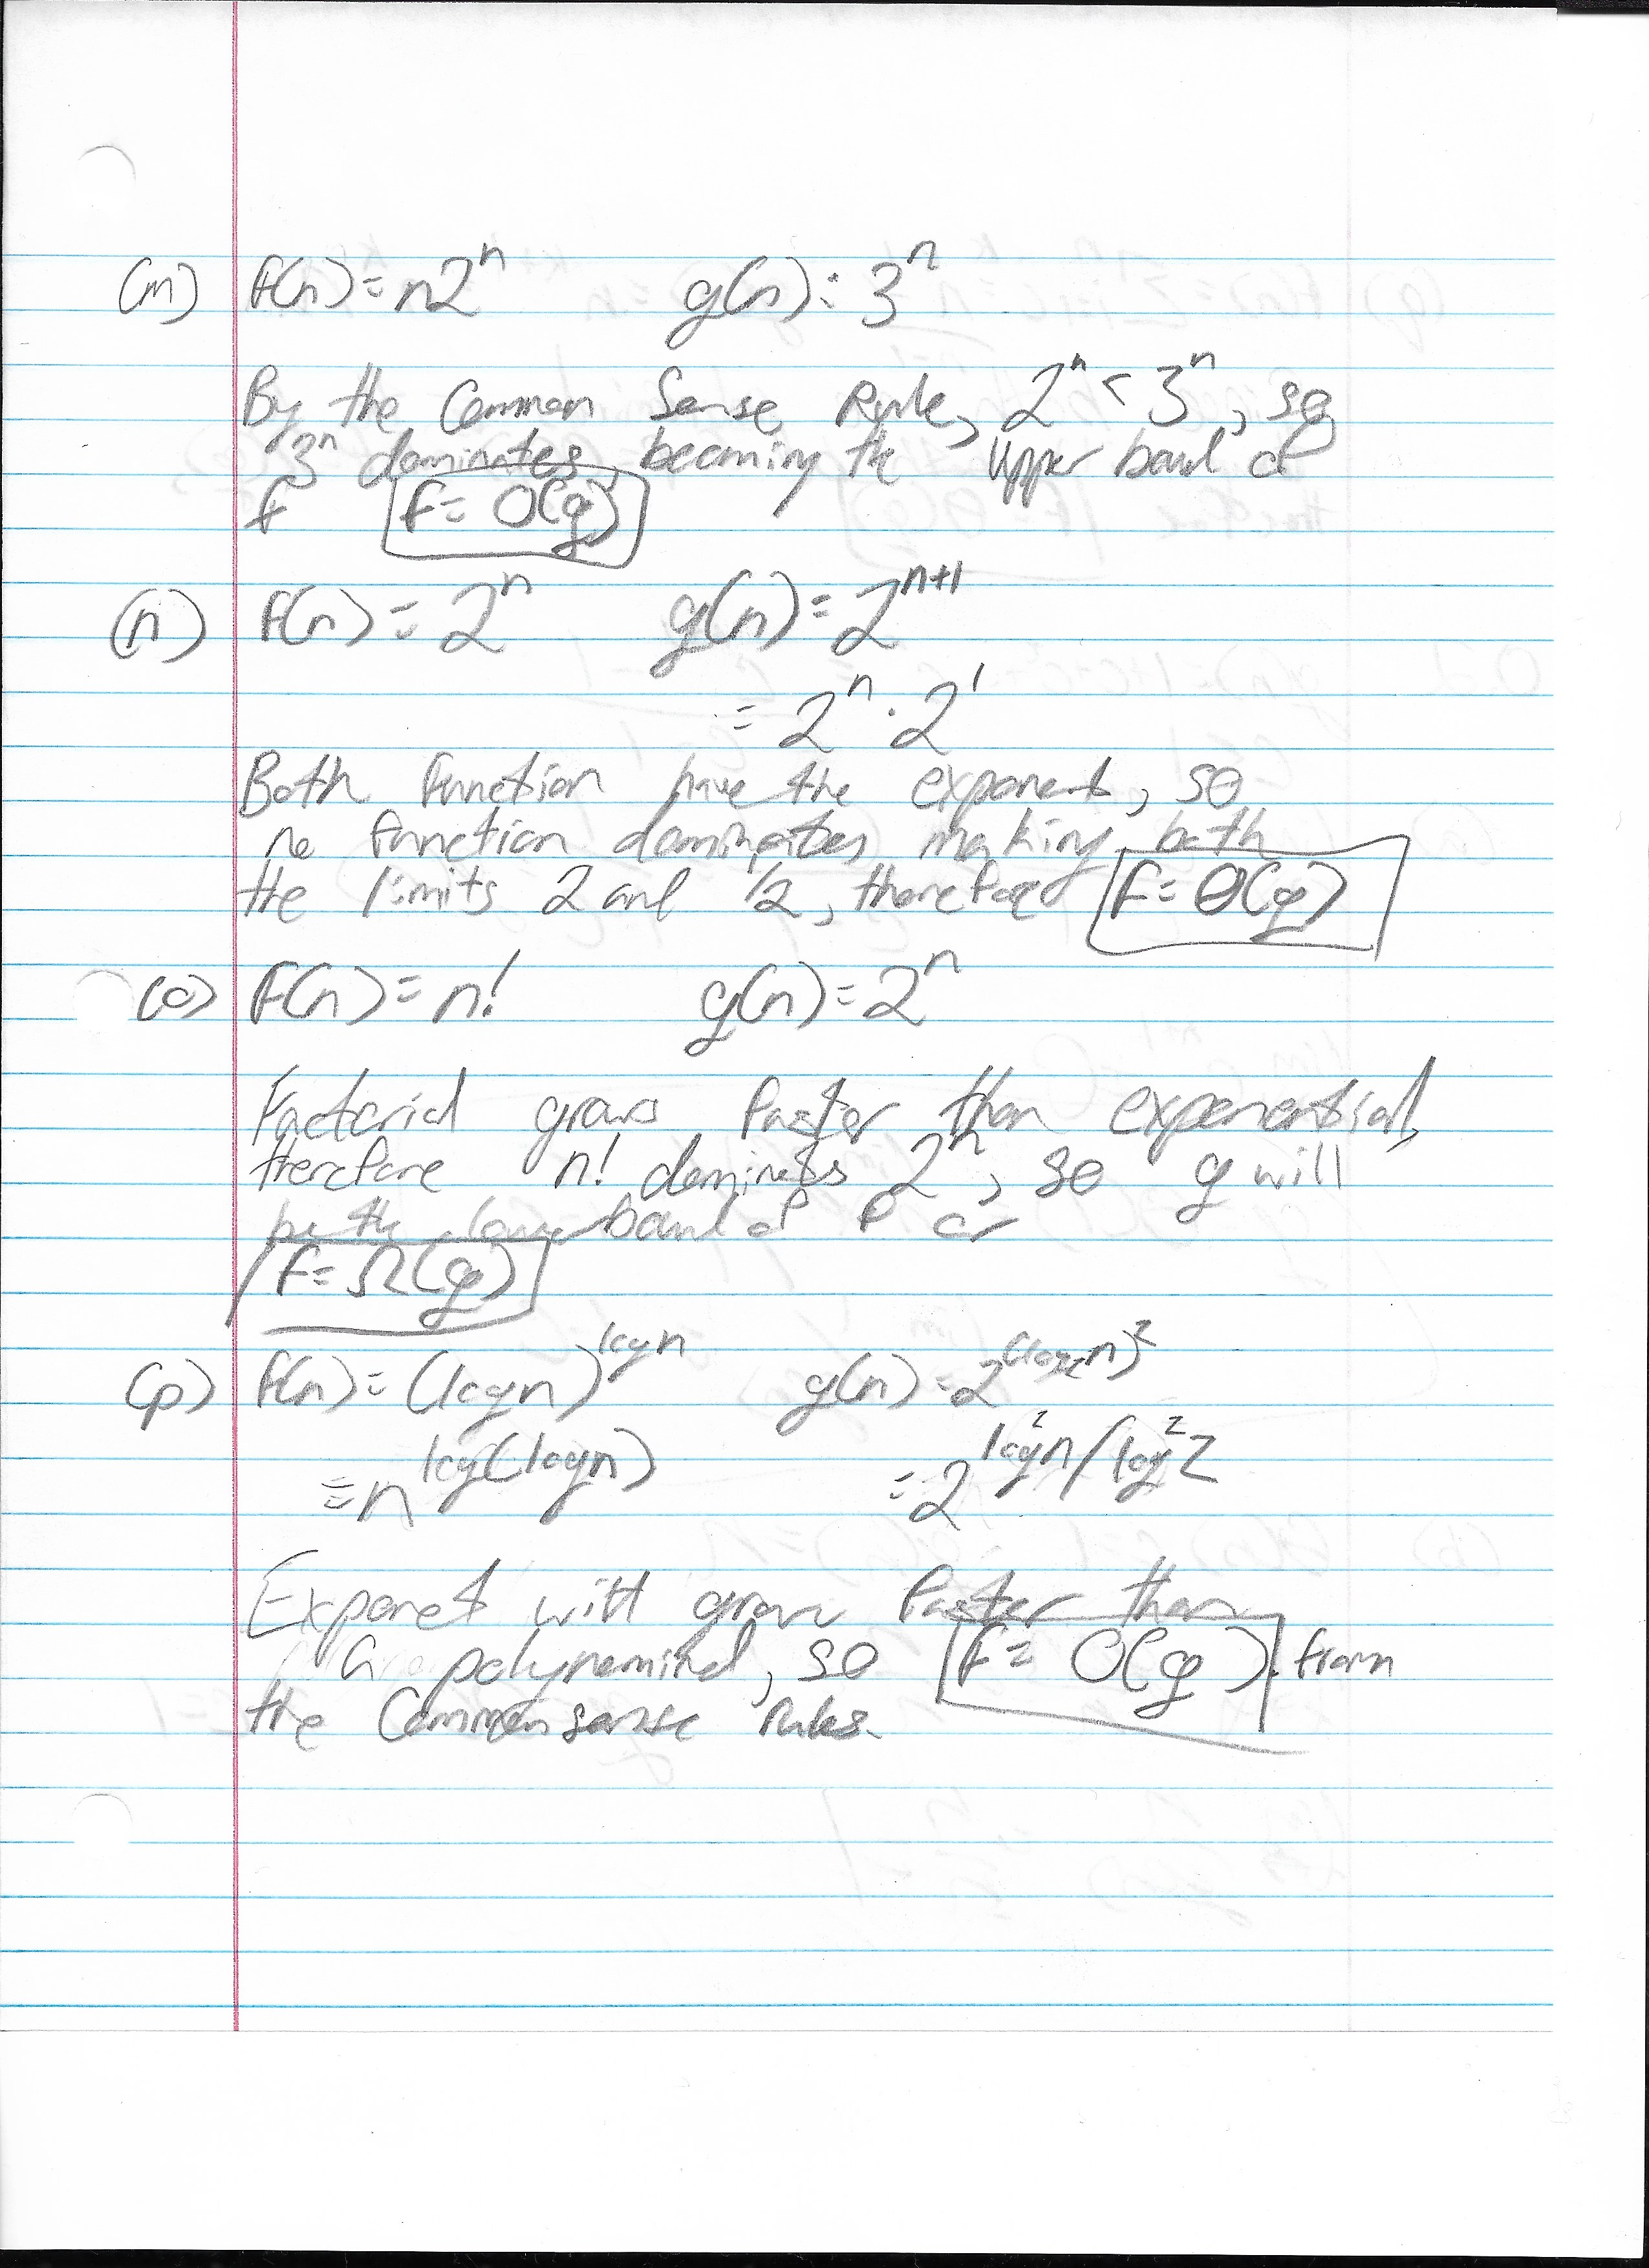 (m) f(n) = n2^n g(n) = 3^n
By the Common Sense Rule, 2^n < 3^n, so
3^n dominates, becoming the upper bound of
f F = O(g)
(n) f(n) = 2^n g(n) = 2^{n+1}
= 2^n · 2^1
Both function have the exponent, so
no function dominates making both
the limits 2 and 1/2, therefore F = Θ(g)
(o) f(n) = n! g(n) = 2^n
Factorial grows faster than exponential,
therefore n! dominates 2^n, so g will
be the lower bound of f or
F = Ω(g)
(p) f(n) = (log n)^{log n} g(n) = 2^{(log_2 n)^2}
= n^{log(log n)} = 2^{log^2 n / log^2 2}
Exponet will grow faster than
a polynomial, so F = O(g). from
the Common sense rules.